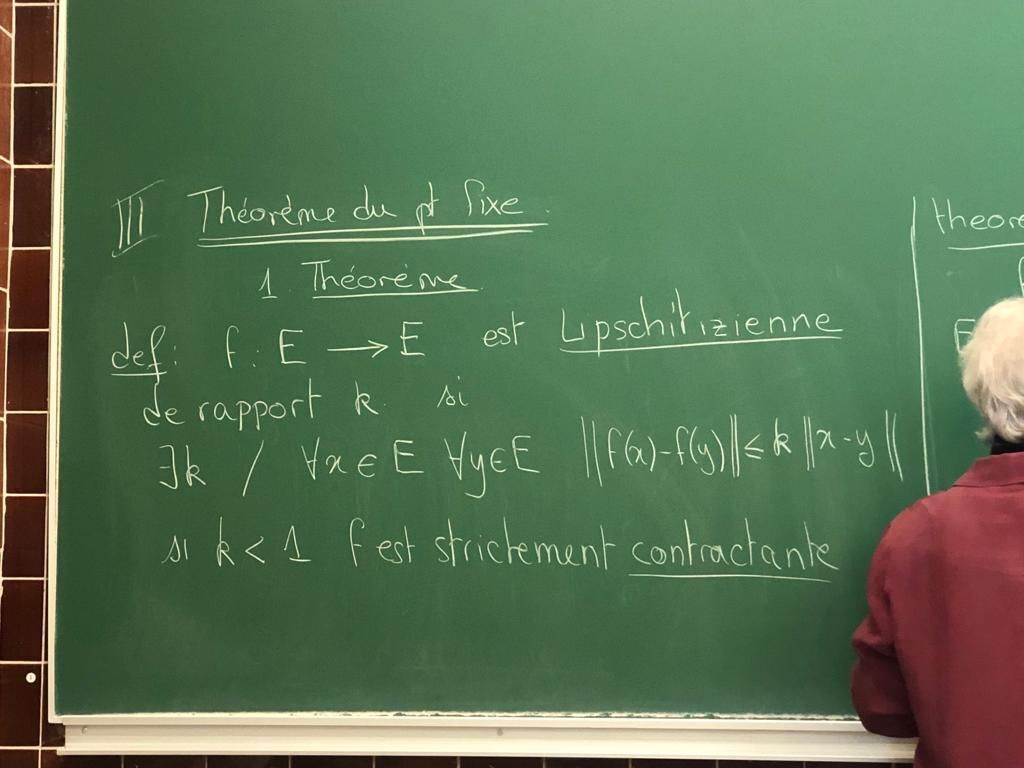 III Théorème du pt fixe.
1. Théorème
def: f: E → E est Lipschitizienne
de rapport k. si
∃k / ∀x ∈ E ∀y ∈ E ||f(x)-f(y)|| ≤ k ||x-y||
si k < 1 f est strictement contractante
theore